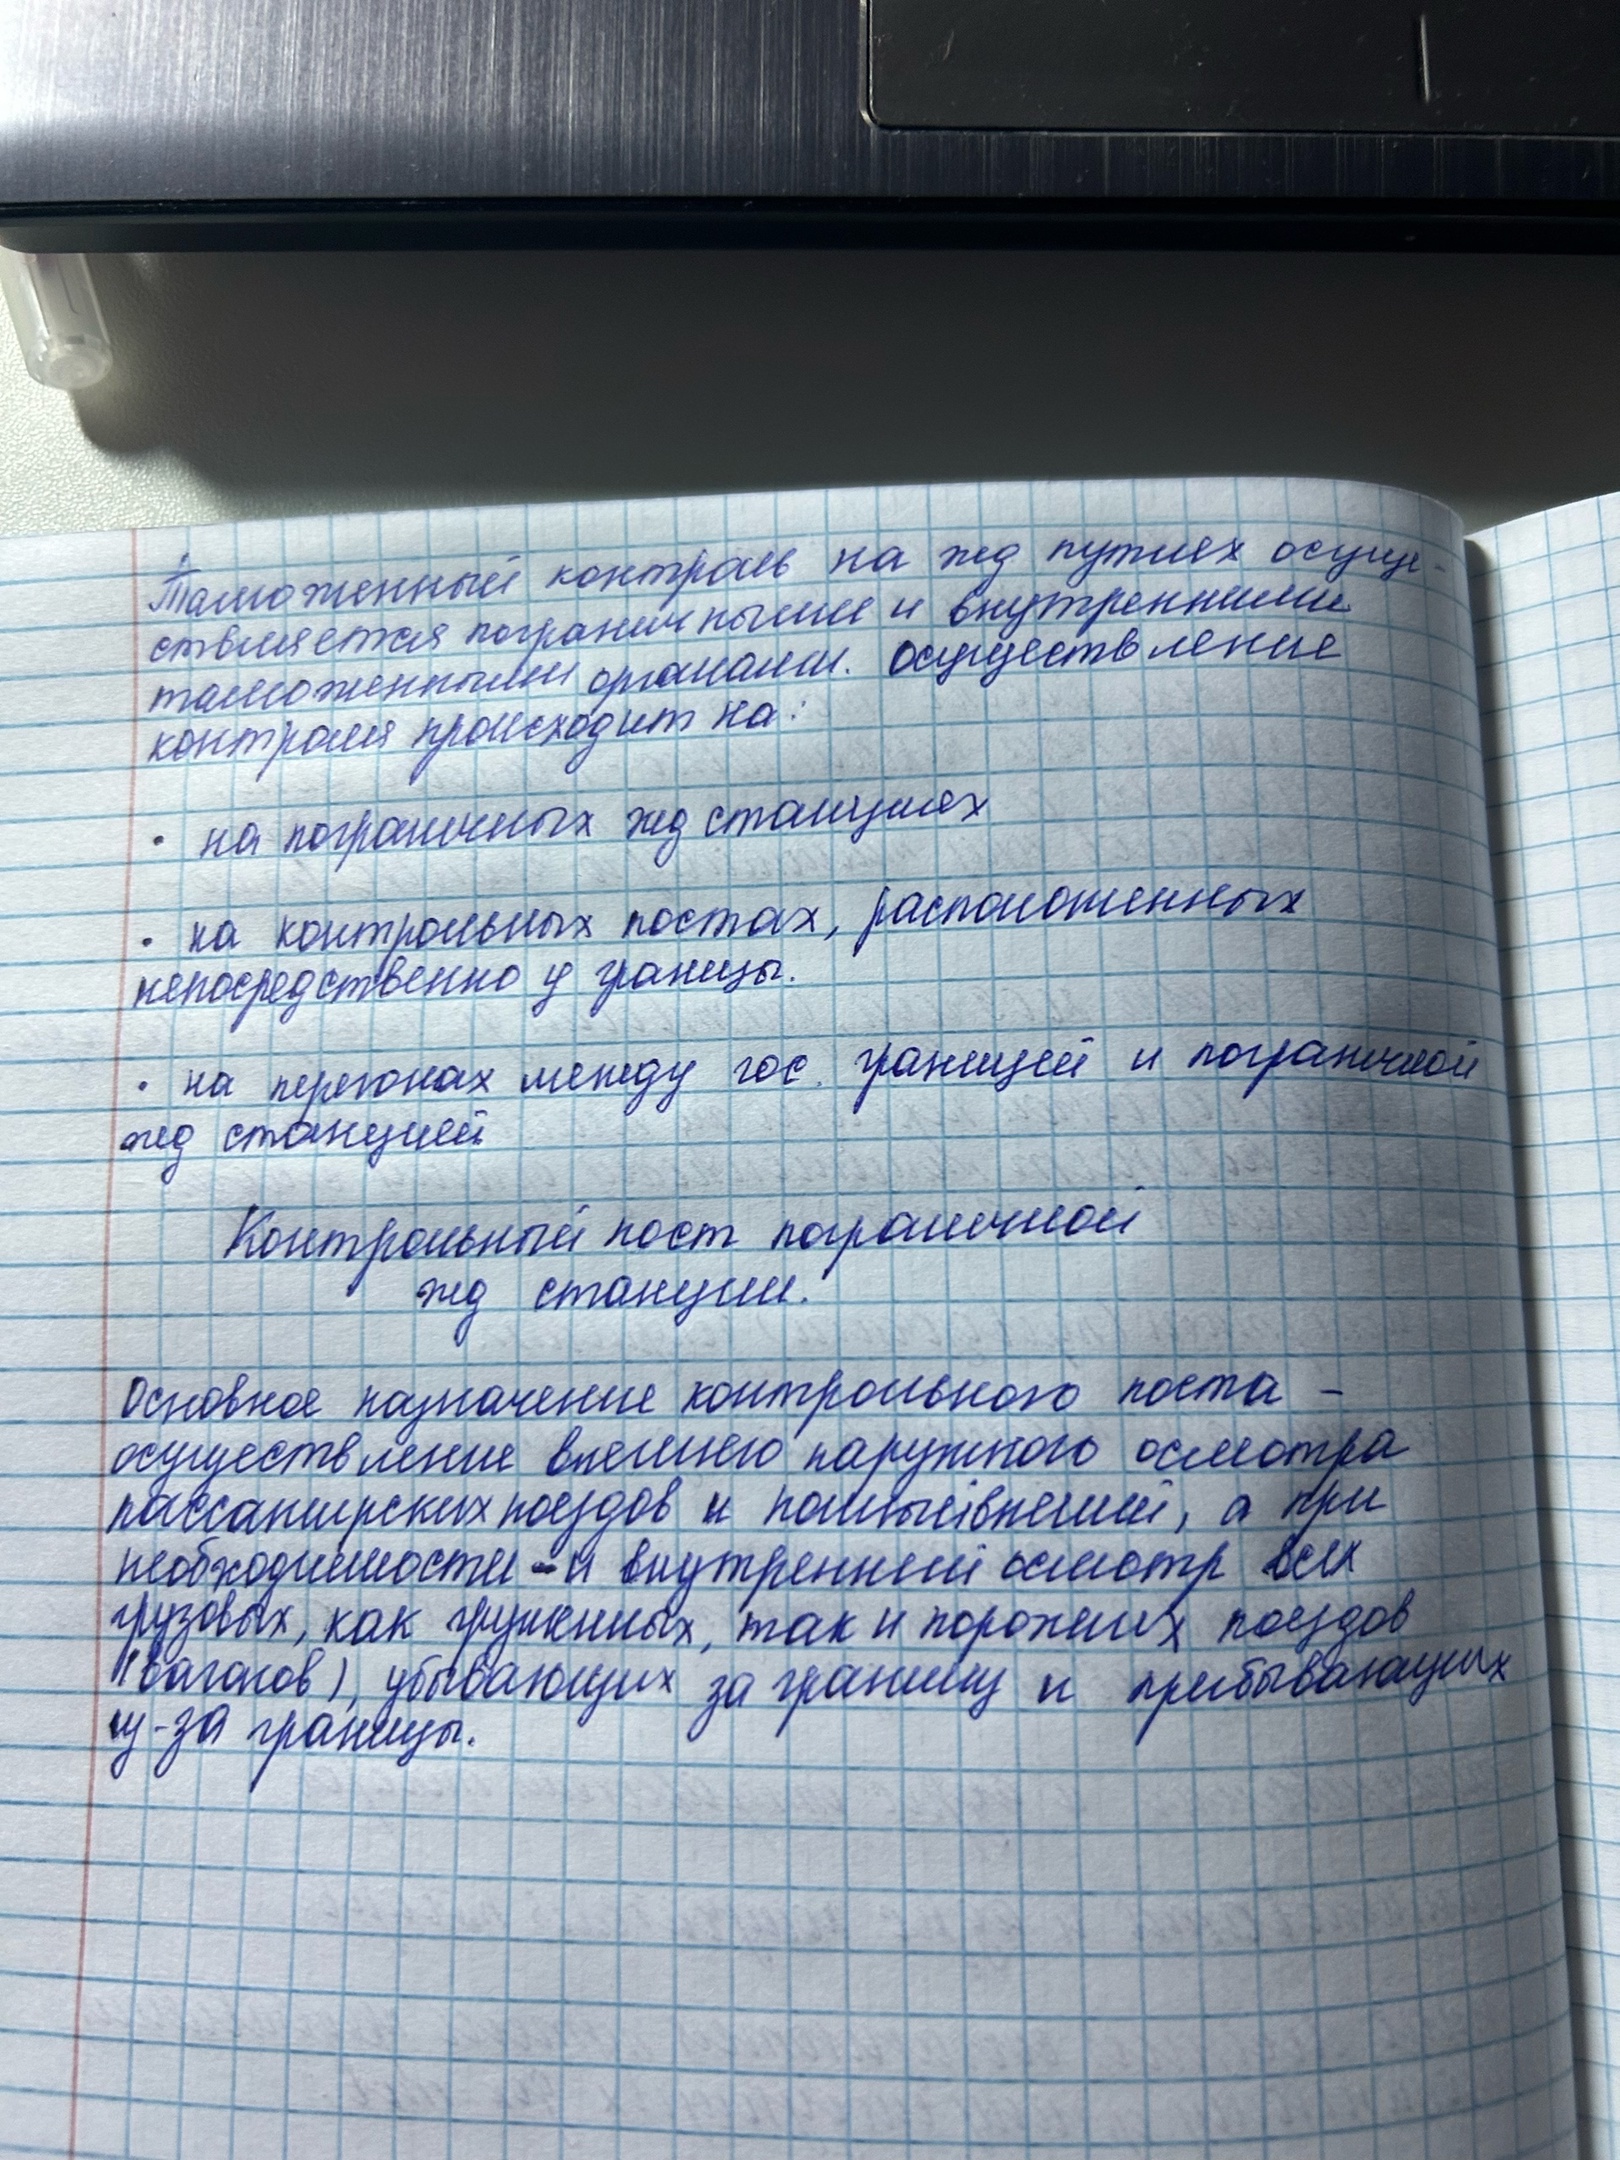 Таможенный контроль на жд путях осуще-
ствляется пограничными и внутренними
таможенными органами. Осуществление
контроля происходит на:
· на пограничных жд станциях
· на контрольных постах, расположенных
непосредственно у границы.
· на перегонах между гос. границей и пограничной
жд станцией
Контрольный пост пограничной
жд станции.
Основное назначение контрольного поста -
осуществление внешнего наружного осмотра
пассажирских поездов и , а при
необходимости - и внутренний осмотр всех
грузовых, как груженных, так и порожних поездов
(вагонов), убывающих за границу и пребывающих
из-за границы.